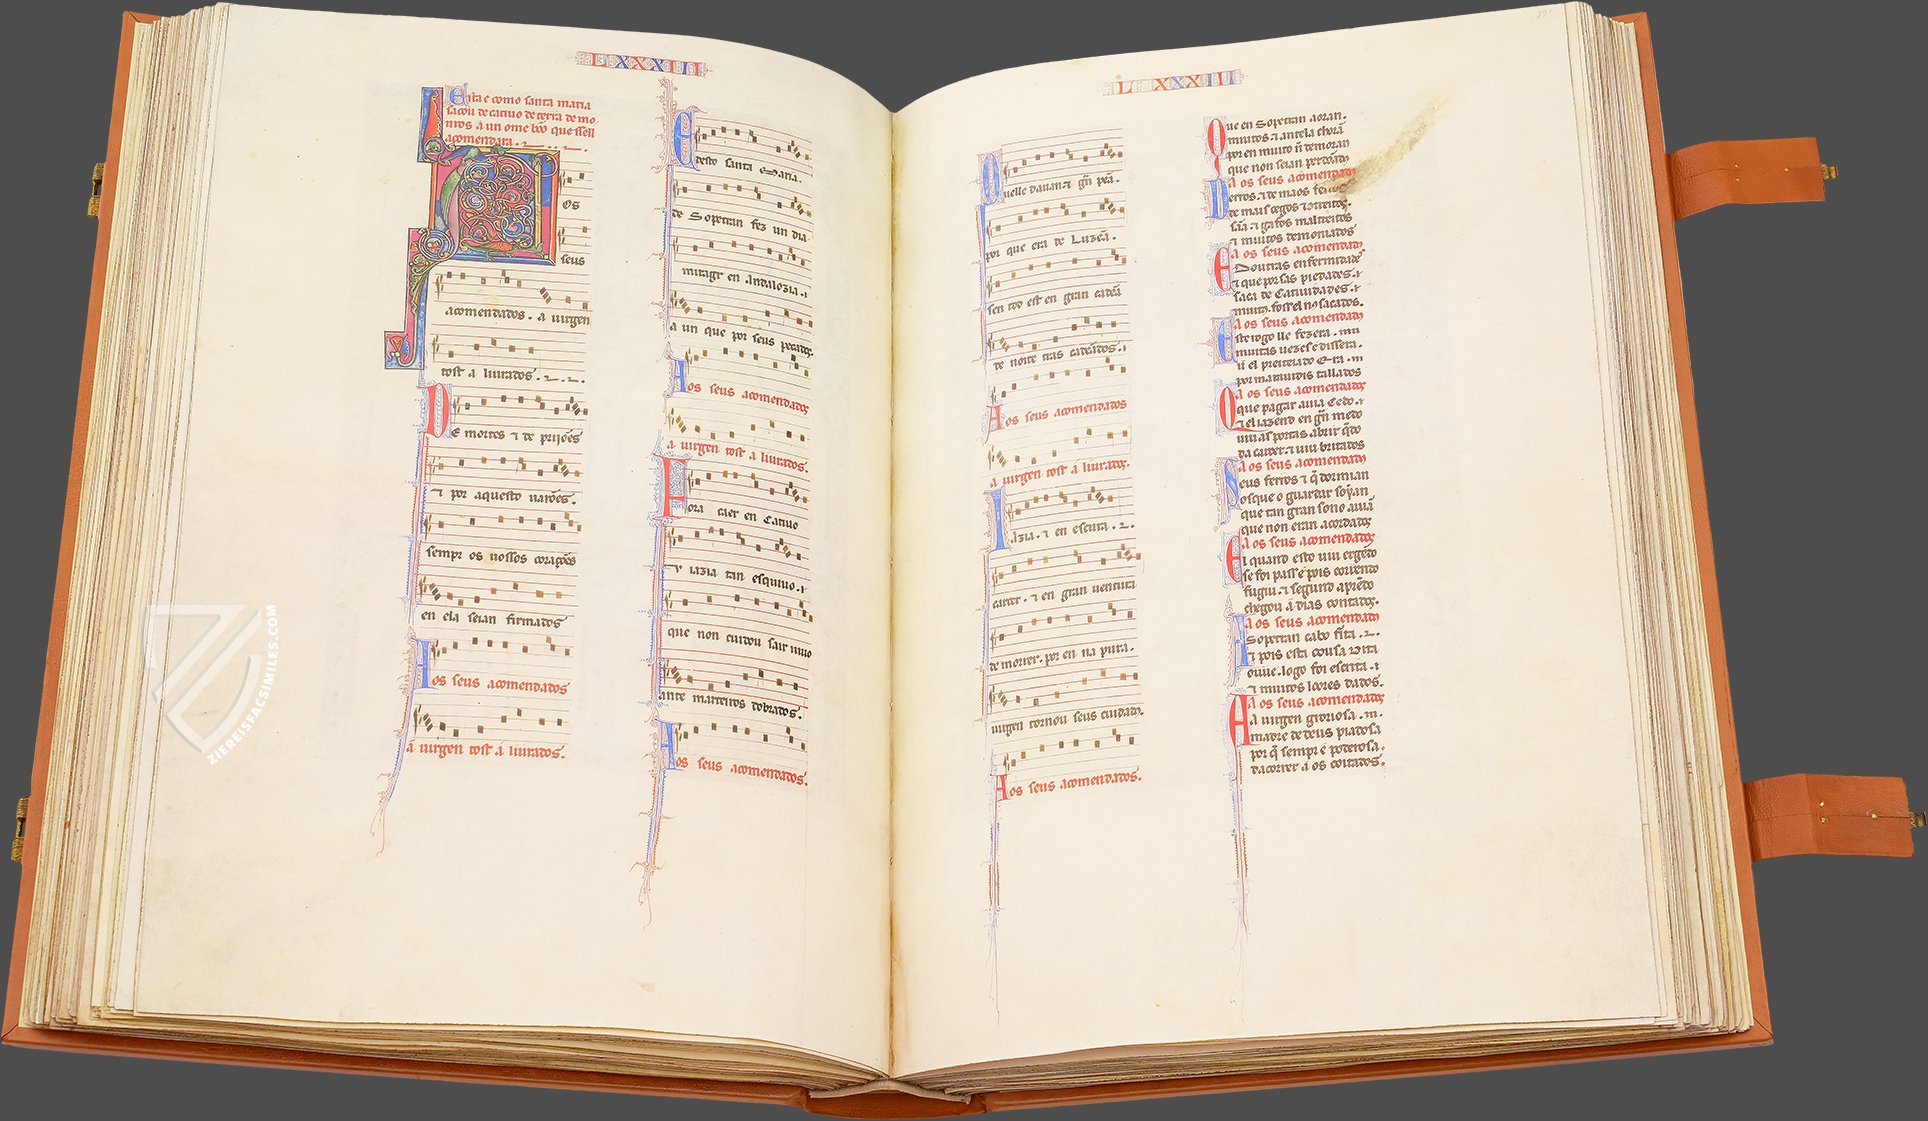 LXXXIII
Esta e como santa maria
sacou de catiuo de terra de mo
uros a un ome bõo que sell
acomendara.
Os
seus
acomendados . a uirgen
tost a liurados .
De mortes ⁊ de prijões
⁊ por aquesto uarões .
sempr os uossos corações
en ela seian firmados
Aos seus acomendados
a uirgen tost a liurados .
E desto santa Maria .
de Sopetran fez un dia
miragr en Andaluzia . ⁊
a un que por seus pecados
Aos seus acomendados
a uirgen tost a liurados .
Fora caer en Catiuo
⁊ y iazia tan esquiuo . ⁊
que non cuidou sair uiuo
ante marteiros dobrados .
Aos seus acomendados .
LXXXIII
Quelle dauan ⁊ grã pẽa .
por que era de Luzẽa .
sen tod est en gran cadẽa
de noite tras cadẽados . ⁊
Aos seus acomendados
a uirgen tost a liurados .
Iazia . ⁊ en escura .
carcer . ⁊ en gran uentura
de morrer . por en na pura .
uirgen tornou seus cuidados
Aos seus acomendados .
Que en Sopetran aoran .
muitos ⁊ antela chorã
por en muito ñ demoran
que non seian perdõados
Aos seus acomendados
Derros . ⁊ de maos feitos
de mais cegos ⁊ contreitos .
sãa ⁊ gafos maltreitos
⁊ muitos demoniados
Aos seus acomendados
E doutras enfermidades
⁊ que por sas piedades . ⁊
saca de Catiuidades . ⁊
muitos
Aos seus acomendados
Este rogo lle fezera .
muitas uezes e dissera .
por marauidis tallados
Aos seus acomendados
Que pagar auia Cedo . ⁊
⁊ el iazend en grã medo
uiu as portas abrir q̃do
da carcer ⁊ uiu britados
Aos seus acomendados
Seus ferros ⁊ q̃ dormian
os que o guardar soyan
que tan gran sono auiã
que non eran acordados
Aos seus acomendados
El quand esto uiu ergeito
se foi passe pois correndo
fugiu . ⁊ segund aprẽdo
chegou a dias contados .
Aos seus acomendados
A Sopetran cabo fita .
⁊ pois esta cousa dita
ouue . logo foi escrita . ⁊
⁊ muitos loores dados .
Aos seus acomendados
A a uirgen gloriosa .
madre de deus piadosa
por q̃ sempr e poderosa .
dacorrer a os coitados .
ZIEREISFACSIMILES.COM